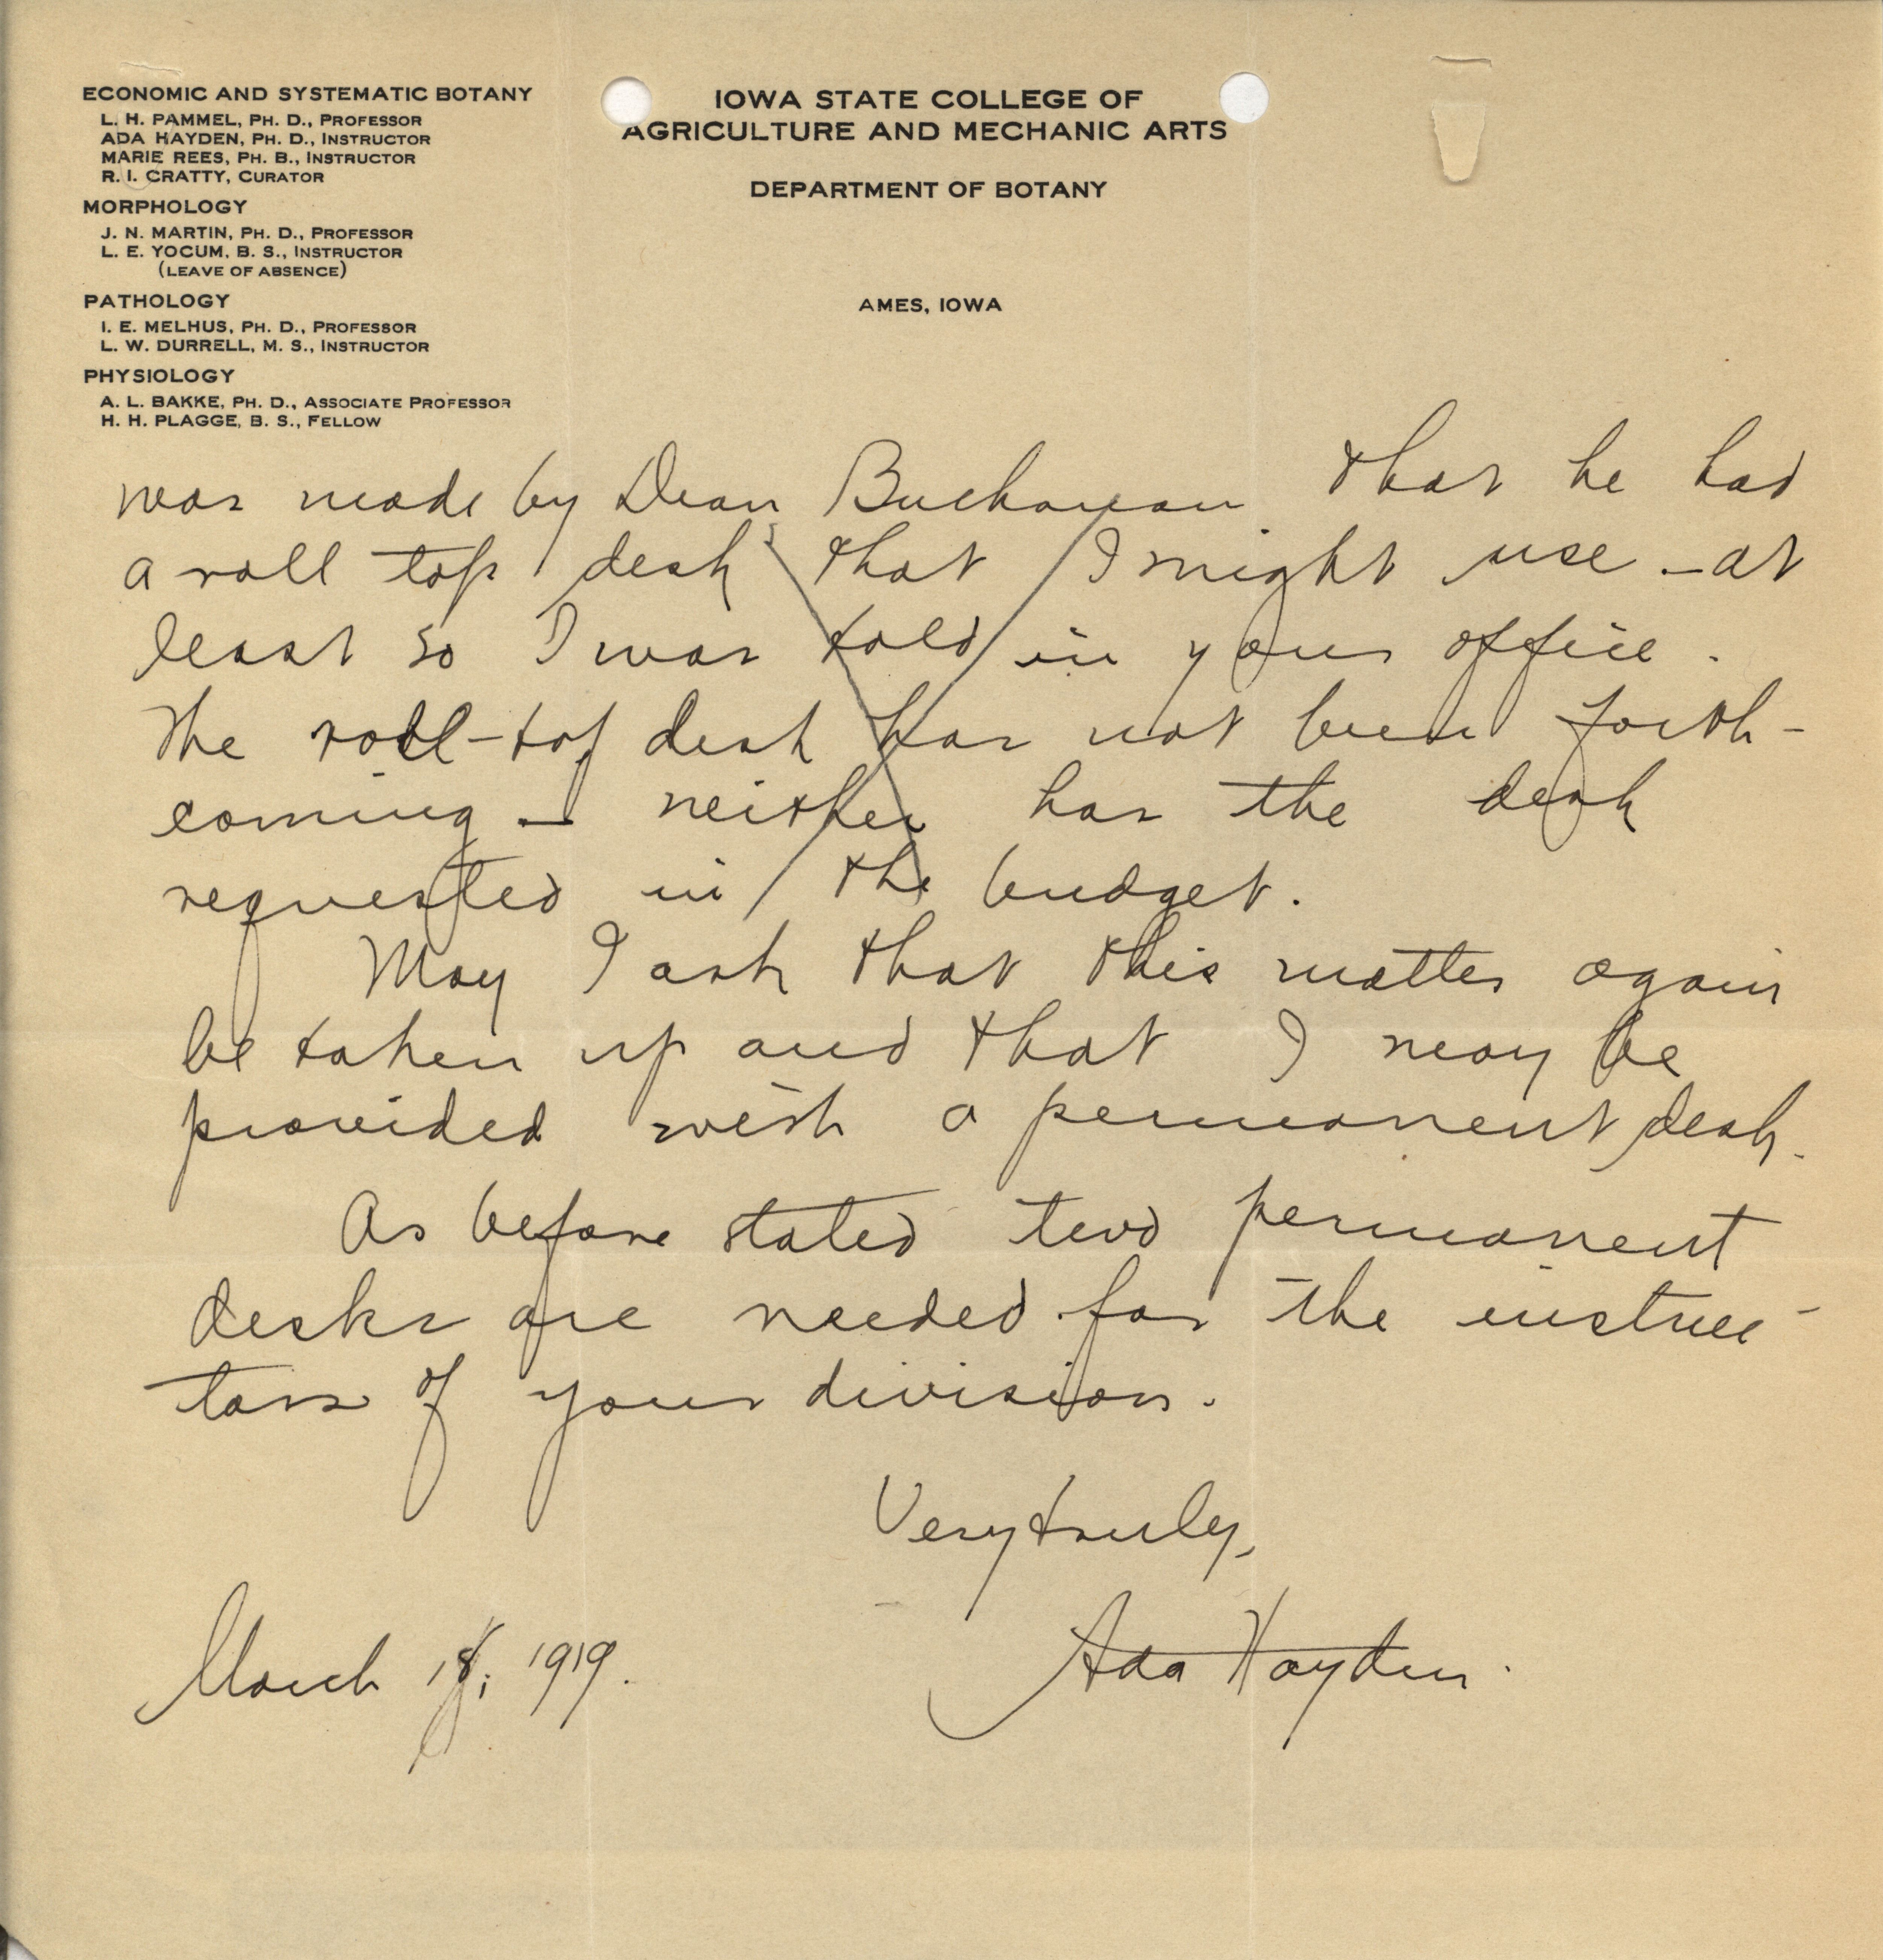 ECONOMIC AND SYSTEMATIC BOTANY
L. H. PAMMEL, PH. D., PROFESSOR
ADA HAYDEN, PH. D., INSTRUCTOR
MARIE REES, PH. B., INSTRUCTOR
R. I. CRATTY, CURATOR
MORPHOLOGY
J. N. MARTIN, PH. D., PROFESSOR
L. E. YOCUM, B. S., INSTRUCTOR
(LEAVE OF ABSENCE)
PATHOLOGY
I. E. MELHUS, PH. D., PROFESSOR
L. W. DURRELL, M. S., INSTRUCTOR
PHYSIOLOGY
A. L. BAKKE, PH. D., ASSOCIATE PROFESSOR
H. H. PLAGGE, B. S., FELLOW
IOWA STATE COLLEGE OF
AGRICULTURE AND MECHANIC ARTS
DEPARTMENT OF BOTANY
AMES, IOWA
was made by Dean Buchanan that he had
a roll top desk that I might use - at
least so I was told in your office.
The roll-top desk has not been forth-
coming - neither has the desk
requested in the budget.
May I ask that this matter again
be taken up and that I may be
provided with a permanent desk.
As before stated two permanent
desks are needed for the instruc-
tors of your division.
Very truly,
Ada Hayden.
March 18, 1919.